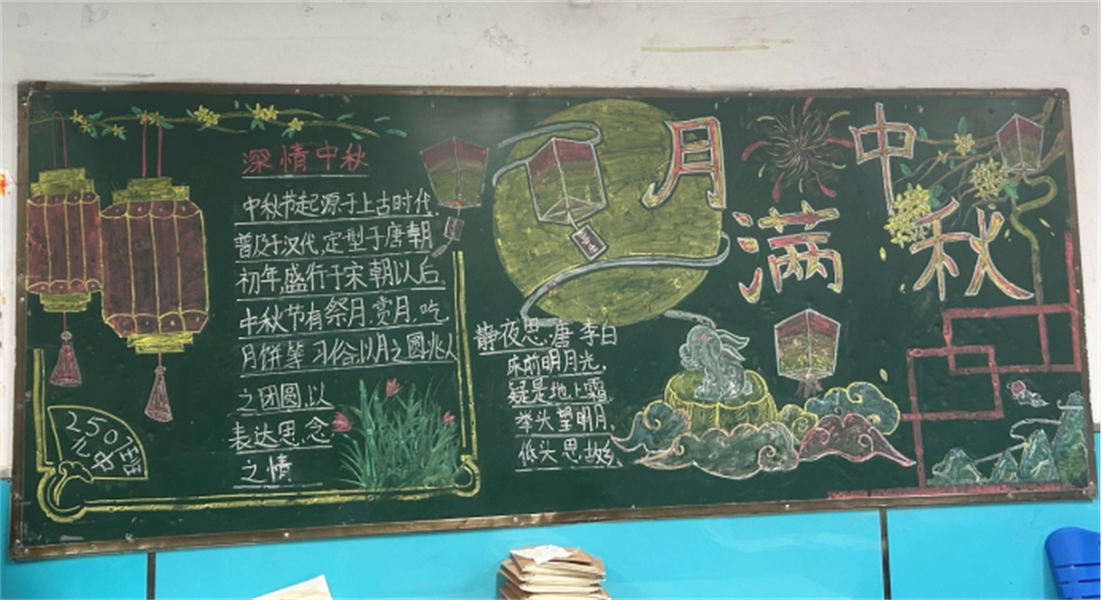 深情中秋
中秋节起源于上古时代,
普及于汉代,定型于唐朝
初年,盛行于宋朝以后,
中秋节有祭月,赏月,吃
月饼等习俗,以月之圆兆人
之团圆,以
表达思念
之情
月满
中秋
静夜思.唐 李白
床前明月光,
疑是地上霜
举头望明月,
低头思故乡
2507班